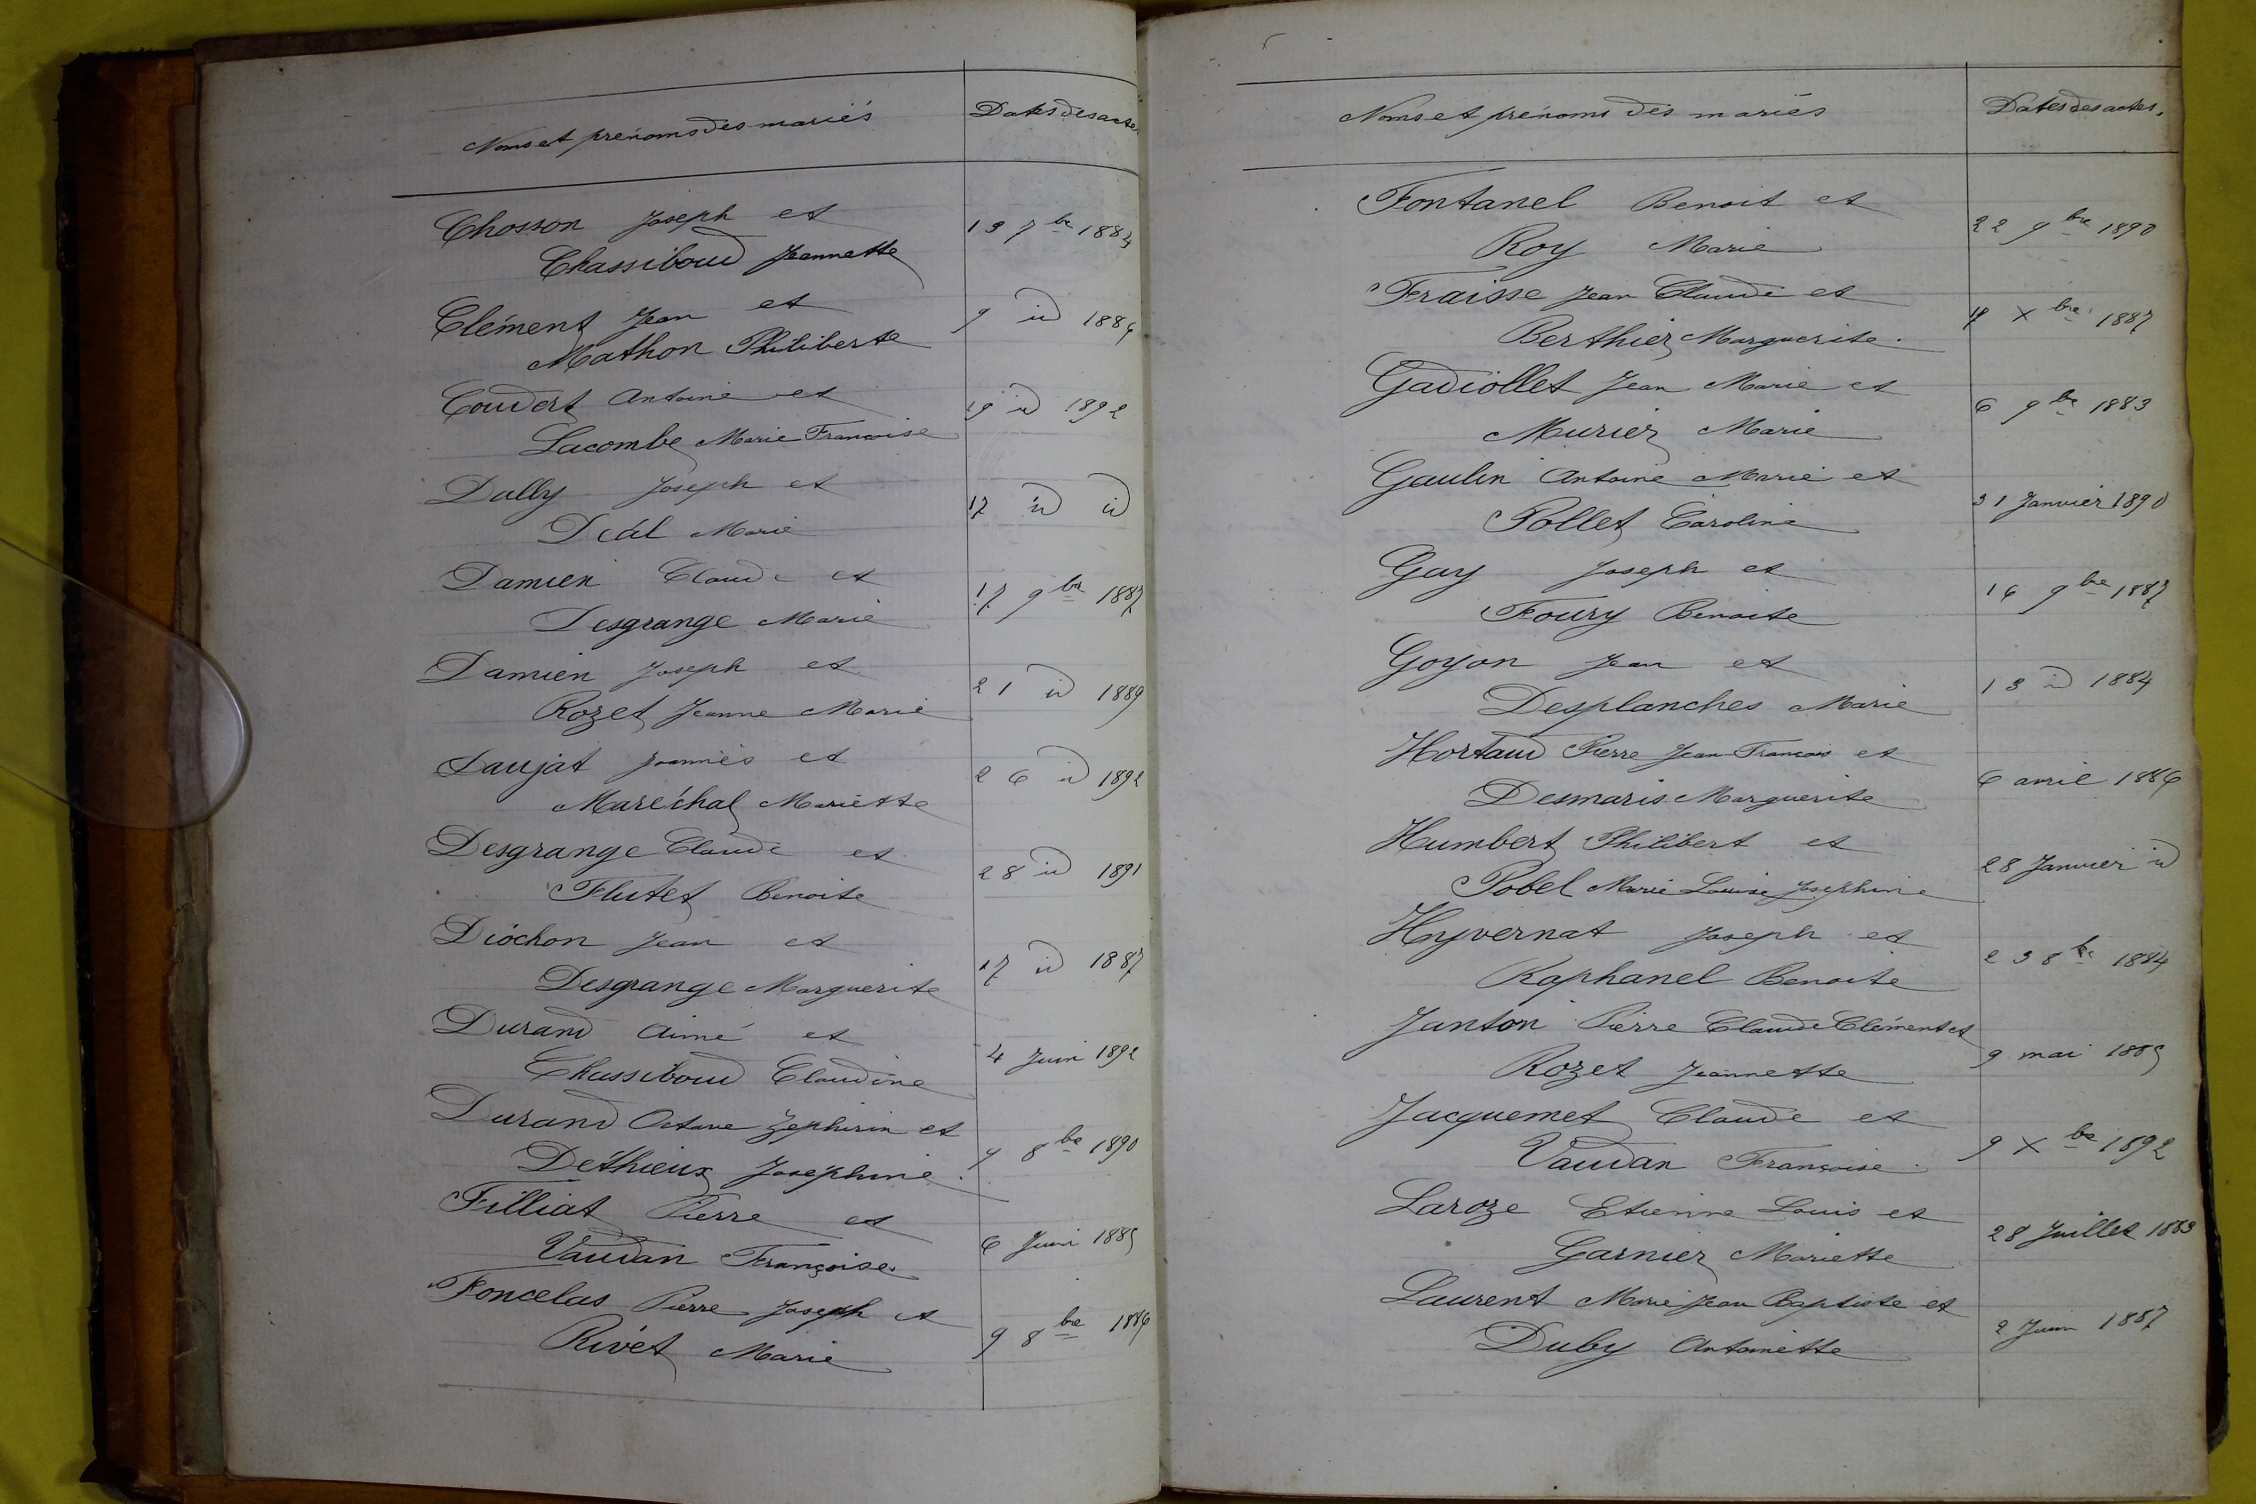 Noms et prénoms des mariés Dates des actes
Chosson Joseph et
13 7bre 1884
Chassiboud Jeannette
Clément Jean et
9 id 1886
Mathon Philiberte
Coudert Antoine et
19 id 1892
Lacombe Marie Francoise
Dally Joseph et
17 id id
Déal Marie
Damien Claude et
17 9bre 1887
Desgrange Marie
Damien Joseph et
21 id 1889
Rozet Jeanne Marie
Daujat Joannès et
26 id 1892
Maréchal Mariette
Desgrange Claude et
28 id 1891
Flutet Benoite
Diochon Jean et
17 id 1887
Desgrange Marguerite
Durand Aimé et
4 Juin 1892
Chassiboud Claudine
Durand Octave Zéphirin et
8bre 1890
Déthieux Joséphine
Filliat Pierre et
6 Juin 1885
Vaudan Françoise
Foncelas Pierre Joseph et
9 8bre 1886
Rivet Marie
Noms et prénoms des mariés Dates des actes.
Fontanel Benoit et
22 9bre 1890
Roy Marie
Fraisse Jean Claude et
Xbre 1887
Berthier Marguerite.
Gadiollet Jean Marie et
6 9bre 1883
Murier Marie
Gaulin Antoine Marie et
31 Janvier 1890
Pollet Caroline
Gay Joseph et
16 9bre 1887
Foury Benoite
Goyon Jean et
13 id 1884
Desplanches Marie
Hortaud Pierre Jean Francois et
6 avril 1886
Desmaris Marguerite
Humbert Philibert et
28 Janvier id
Pobel Marie Louise Joséphine
Hyvernat Joseph et
23 8bre 1884
Raphanel Benoite
Janton Pierre Claude Clément et
9 mai 1885
Rozet Jeannette
Jacquemet Claude et
9 Xbre 1892
Vaudan Françoise
Laroze Etienne Louis et
28 Juillet 1883
Garnier Mariette
Laurent Marie Jean Baptiste et
2 Juin 1887
Duby Antoinette